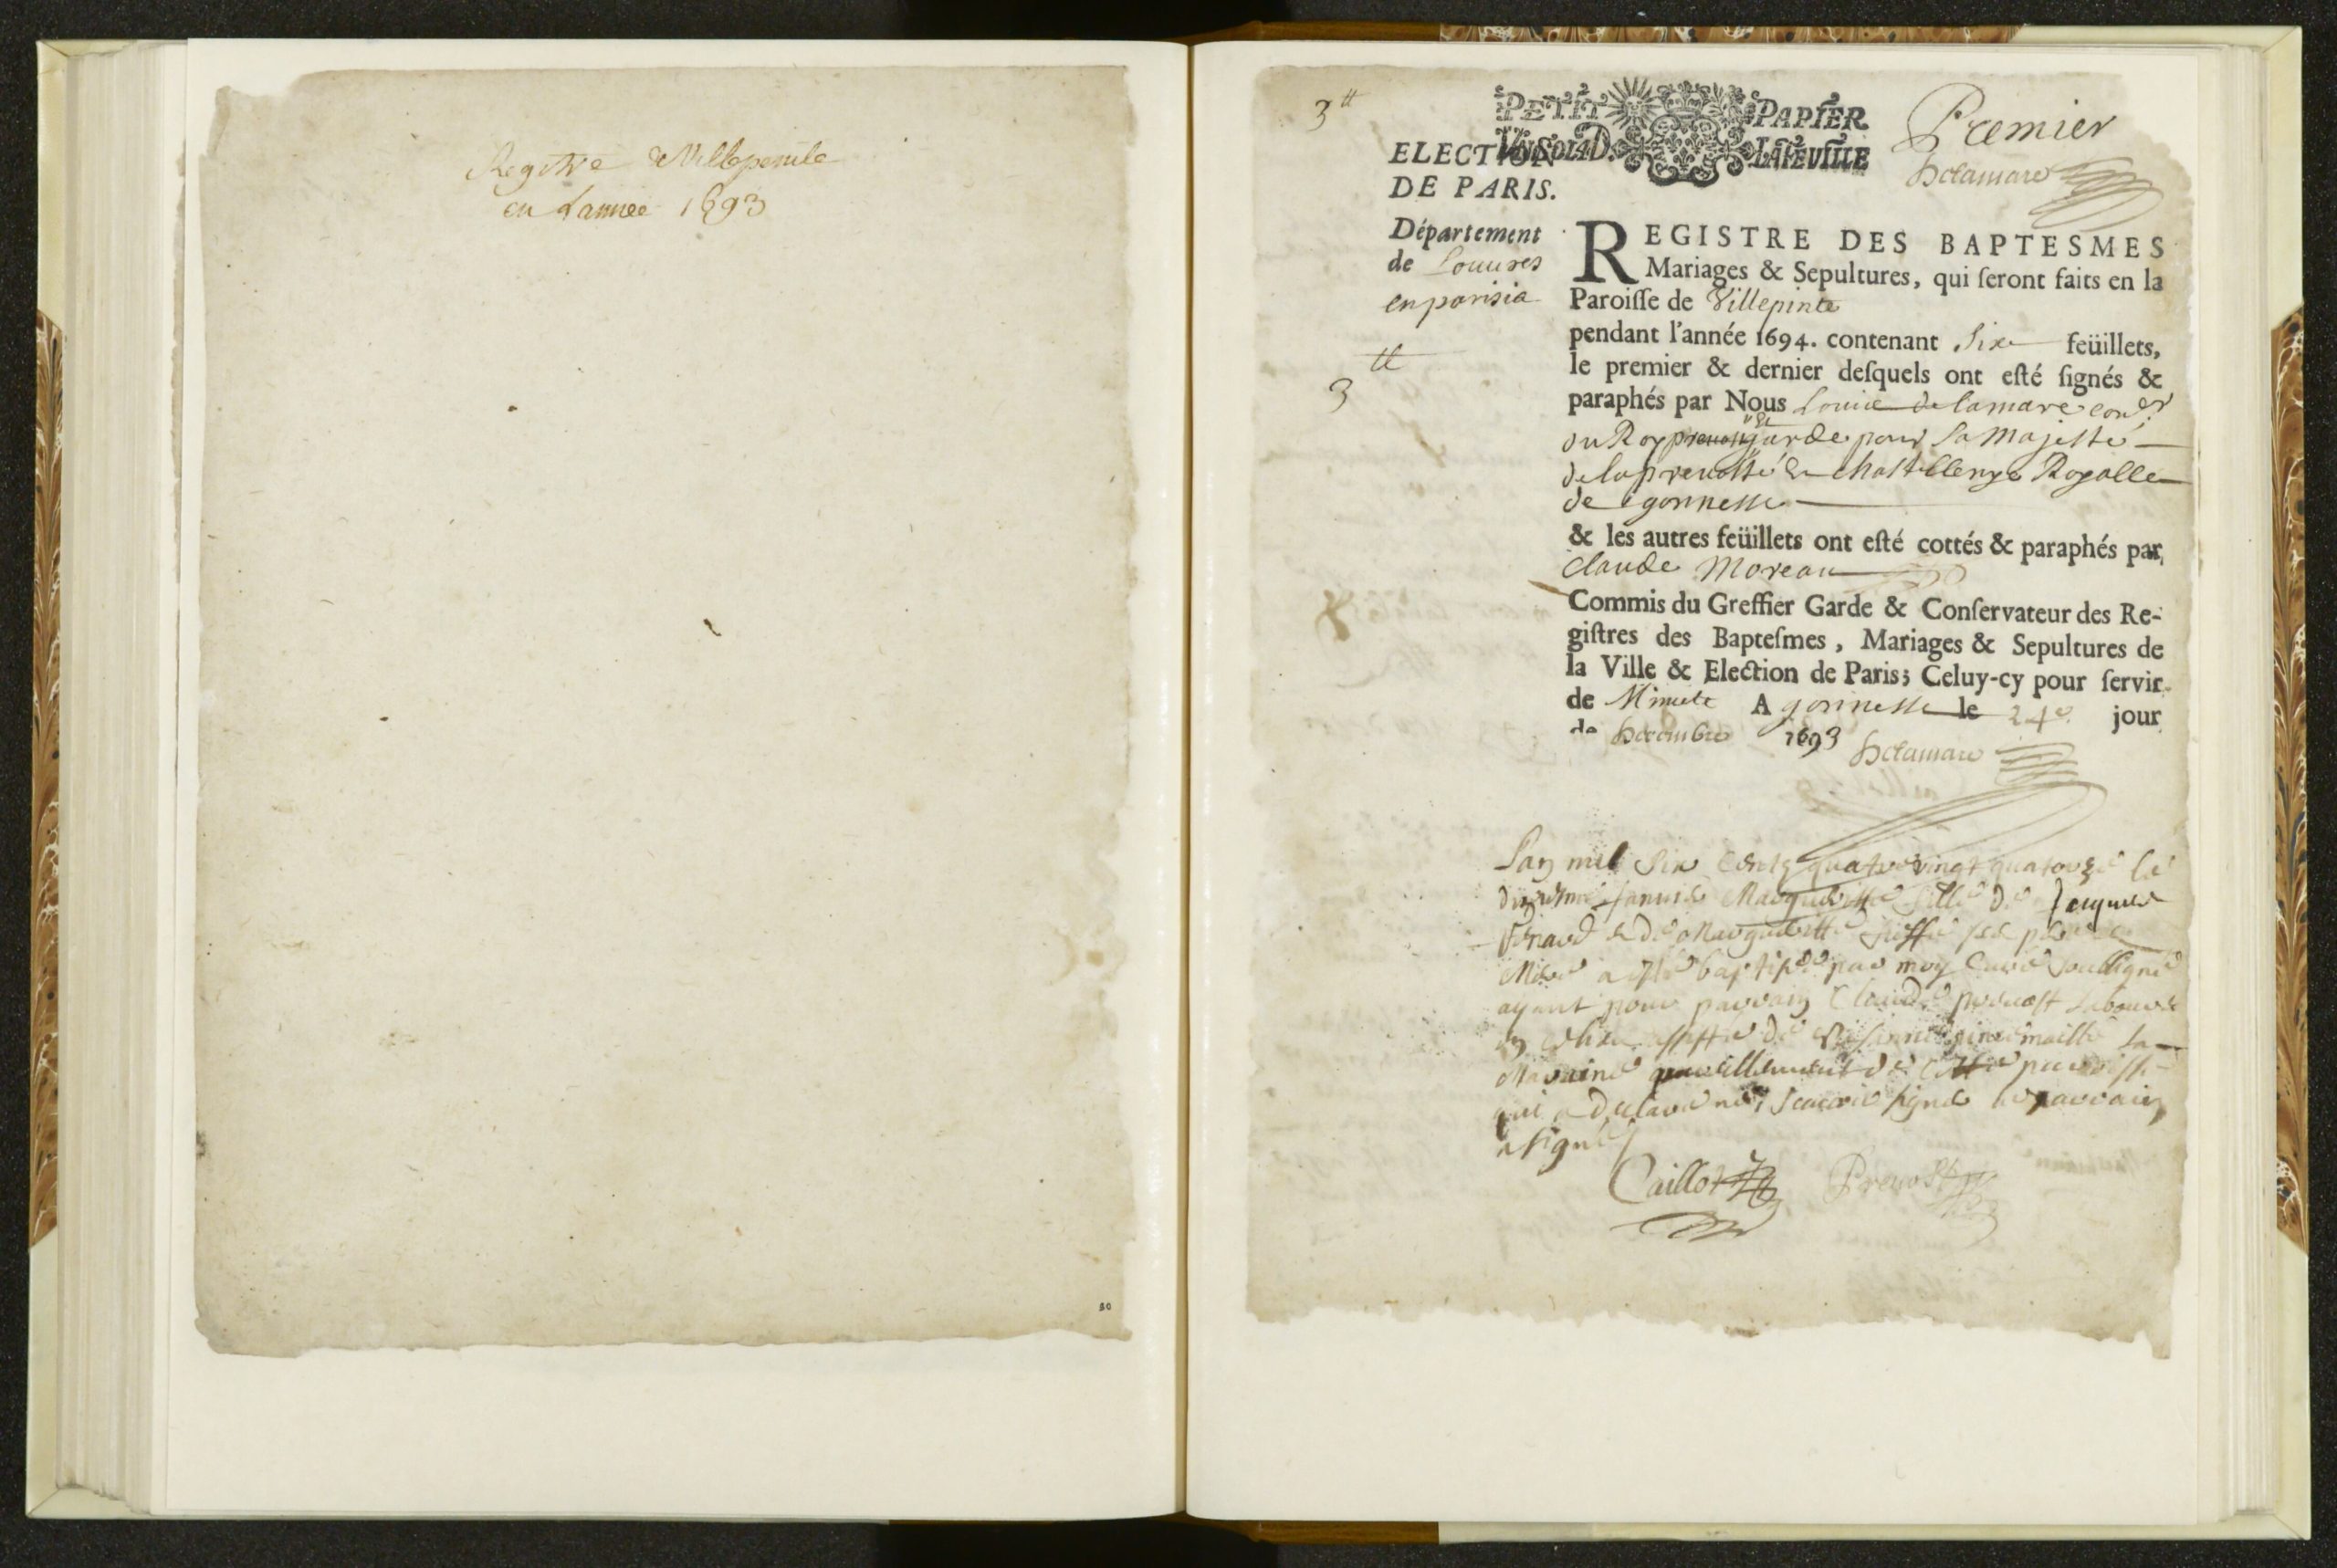 Registre de Villepinte
en Lannee 1693
3tt
PETIT PAPIER
VN SOL 4 D. LA FEVILLE
Premier
Delamare
ELECTION
DE PARIS.
Département
de Louures
en parisis
3 tt
REGISTRE DES BAPTESMES
Mariages & Sepultures, qui ſeront faits en la
Paroiſſe de Villepinte
pendant l'année 1694. contenant Six feüillets,
le premier & dernier deſquels ont eſté ſignés &
paraphés par Nous Louis delamare conr
du Roy garde pour Sa Majesté
de la prevosté & chastellenye Royalle
de gonnesse
& les autres feüillets ont eſté cottés & paraphés par
Claude Moreau
Commis du Greffier Garde & Conſervateur des Re-
giſtres des Bapteſmes, Mariages & Sepultures de
la Ville & Election de Paris; Celuy-cy pour ſervir
de Minute A gonnesse le 24e jour
de Decembre 1693 Delamare
Lan mil Six Cents quatre vingt quatorze le
Januier Margueritte fille de Jacques
& de Margueritte ses pere &
Mere a esté baptisée par moy Curé soubsigné
ayant pour parrain Claude prevost Laboureur
de la
Maraine pareillement de cette parroisse
qui a declaré ne scavoir signer le parrain
a signé
Caillot Prevost
20